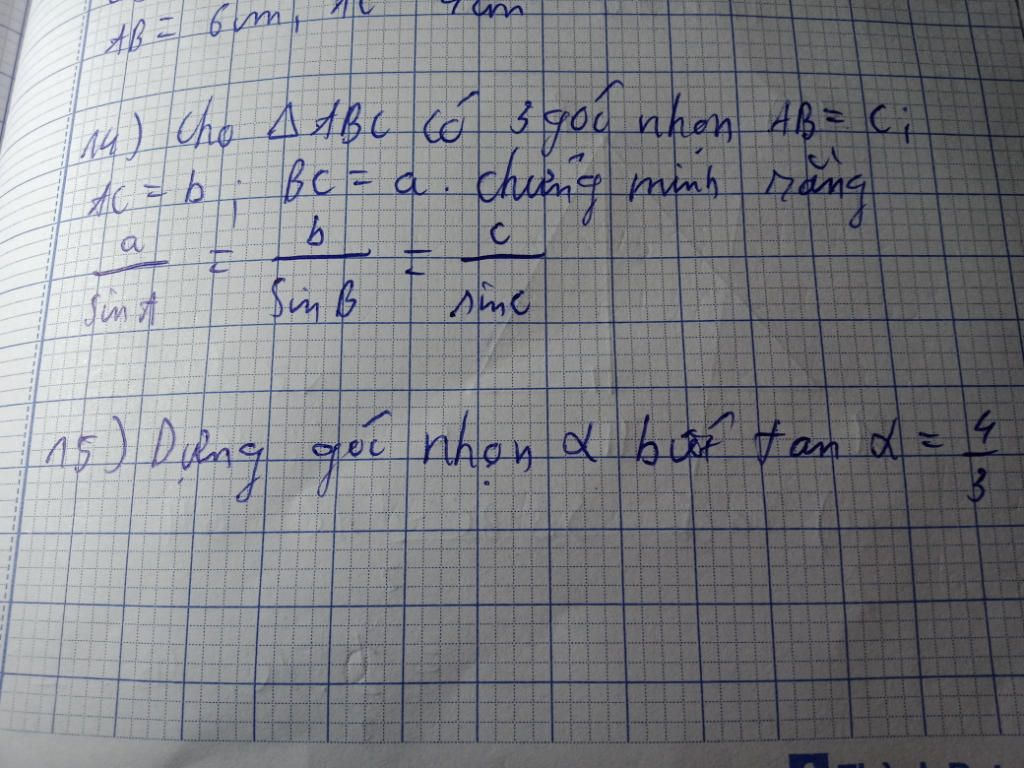 AB = 6 cm,
14) Cho Δ ABC có 3 góc nhọn AB = c;
AC = b; BC = a. Chứng minh rằng
a/sin A = b/sin B = c/sin C
15) Dựng góc nhọn α biết tan α = 4/3